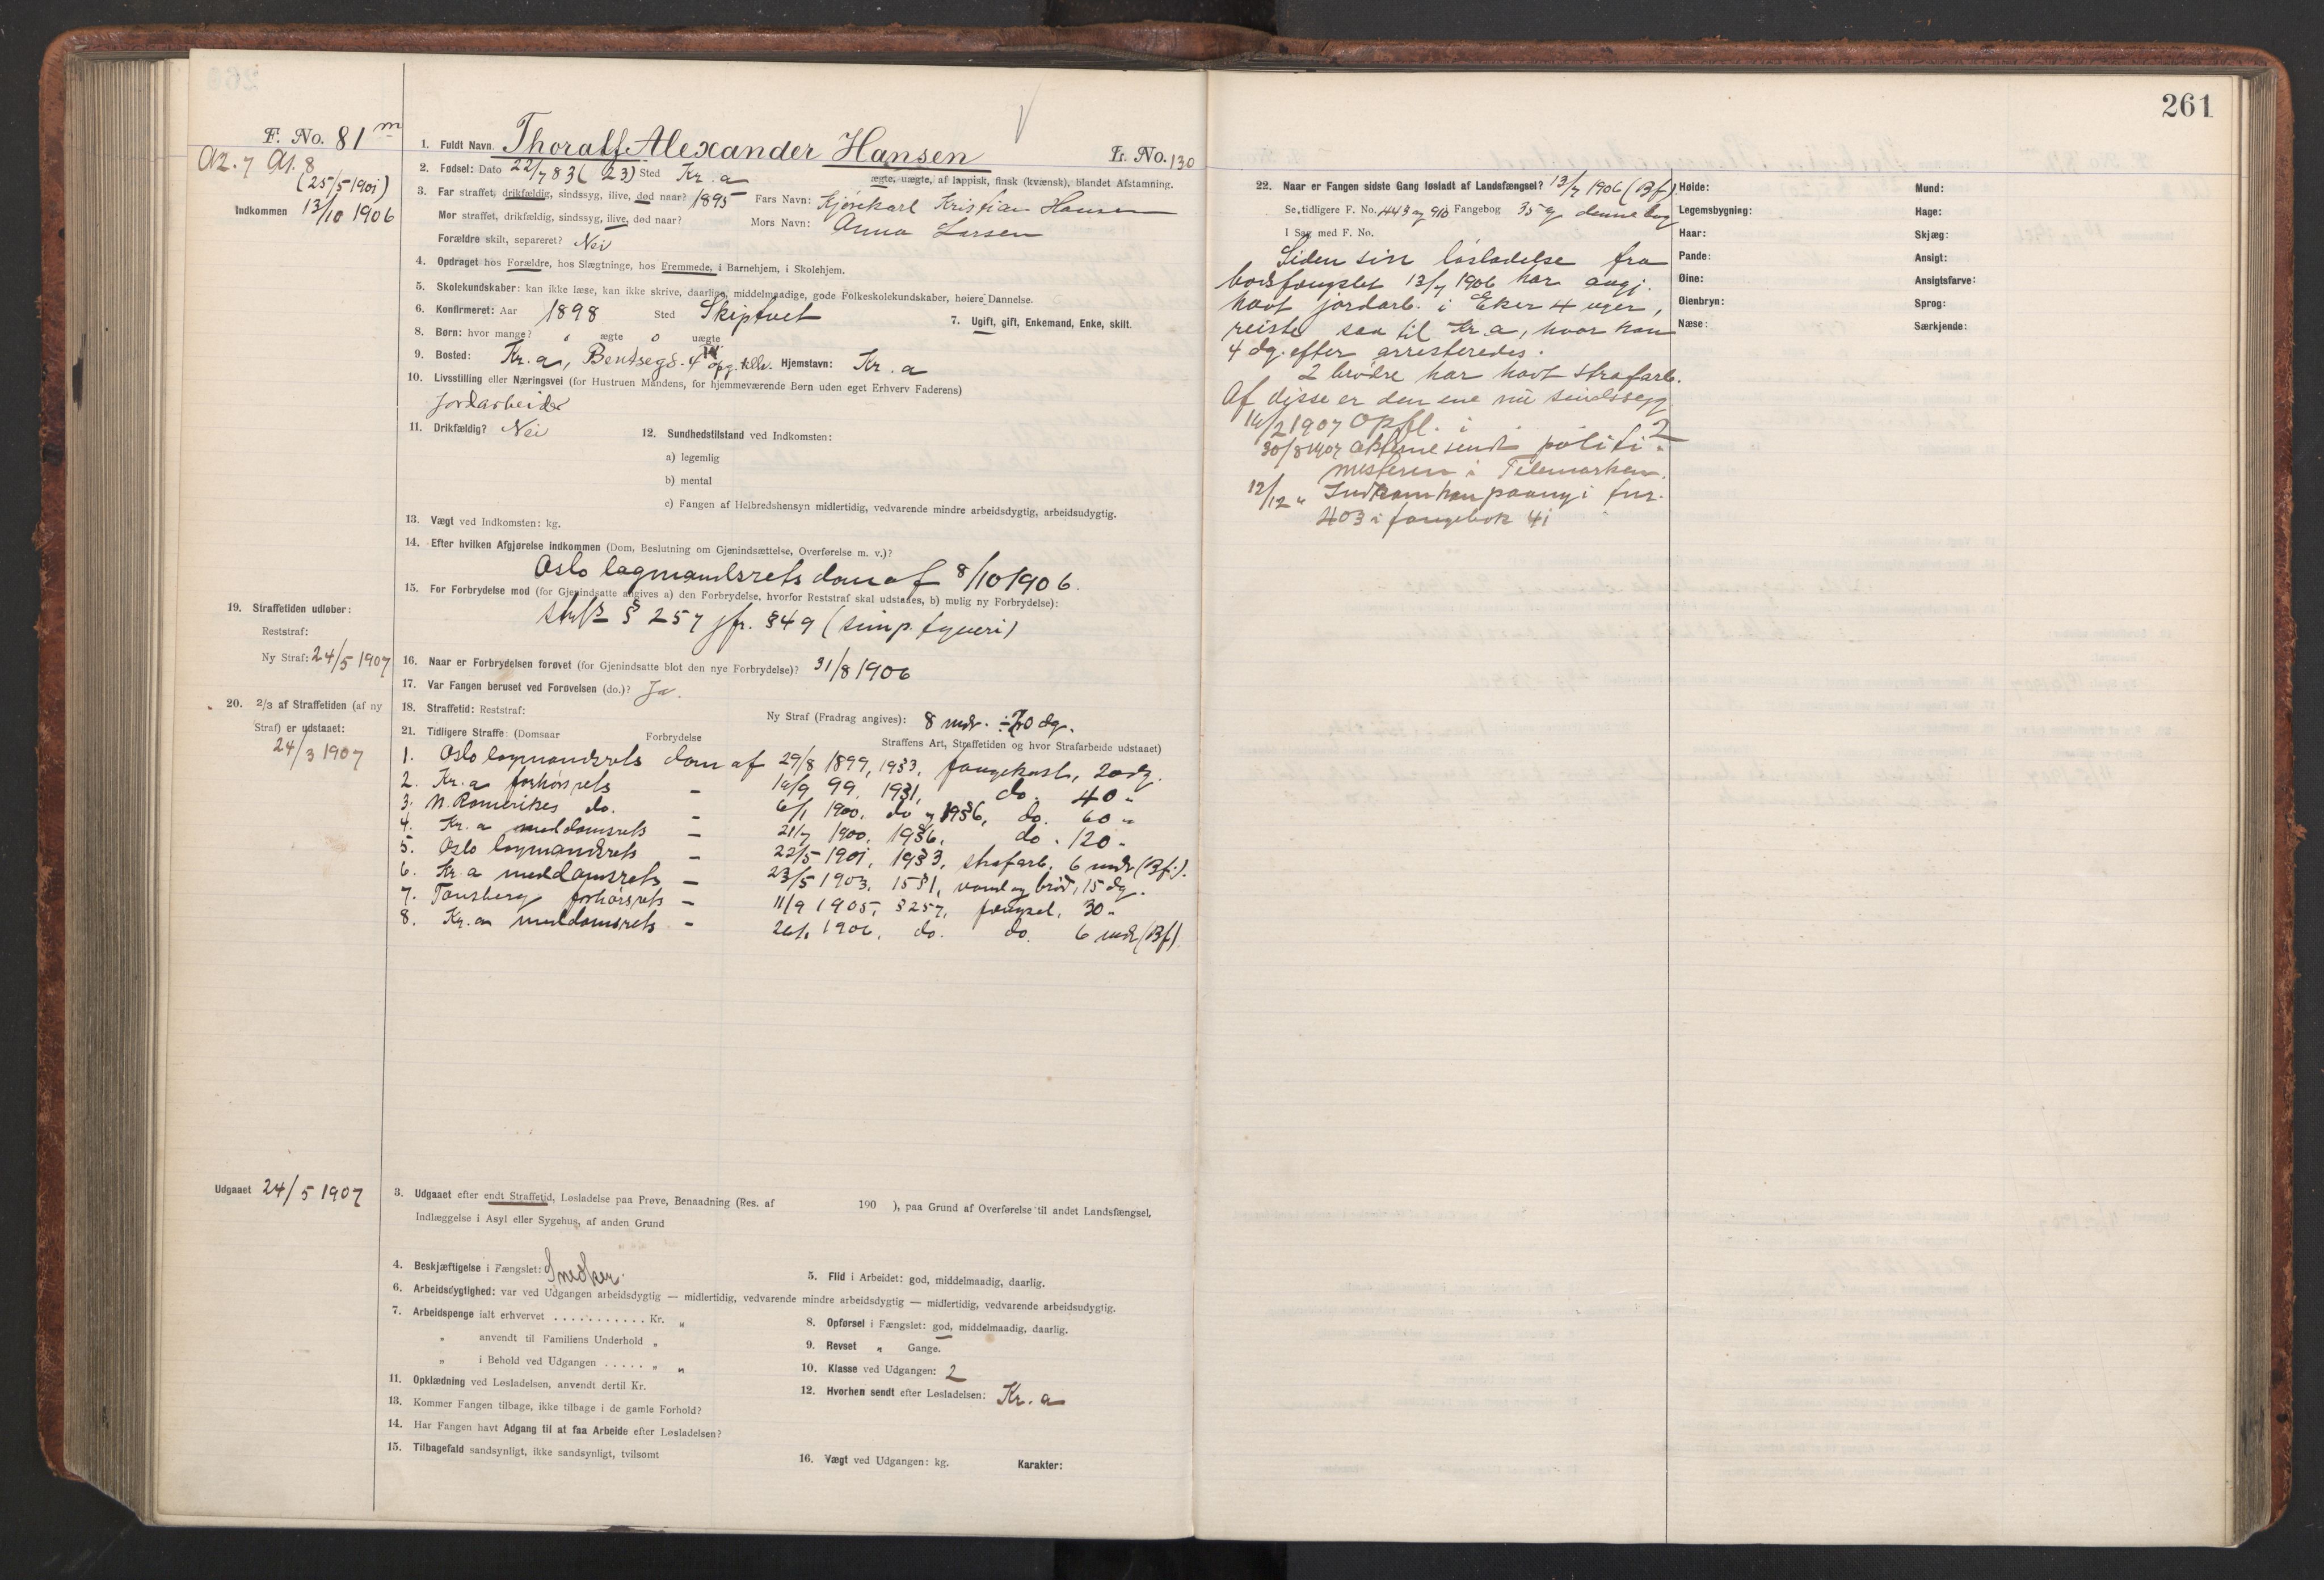 261
F. No. 81 m
A2. 7 A1. 8
(25/5 1901)
Indkommen 13/10 1906
1. Fuldt Navn Thoralf Alexander Hansen L. No. 130
2. Fødsel: Dato 22/7 83 (23) Sted Kr.a ægte, uægte, af lappisk, finsk (kvænsk), blandet Afstamning.
3. Far straffet, drikfældig, sindssyg, ilive, død naar? 1895 Fars Navn: Kjørekarl Kristian Hansen
Mor straffet, drikfældig, sindssyg, ilive, død naar? Mors Navn: Anna Larsen
Forældre skilt, separeret? Nei
4. Opdraget hos Forældre, hos Slægtninge, hos Fremmede, i Barnehjem, i Skolehjem.
5. Skolekundskaber: kan ikke læse, kan ikke skrive, daarlige, middelmaadige, gode Folkeskolekundskaber, høiere Dannelse.
6. Konfirmeret: Aar 1898 Sted Skiptvet 7. Ugift, gift, Enkemand, Enke, skilt.
8. Børn: hvor mange? o ægte o uægte
9. Bosted: Kr.a, Bentsegd. 4 opg. Hjemstavn: Kr.a
10. Livsstilling eller Næringsvei (for Hustruen Mandens, for hjemmeværende Børn uden eget Erhverv Faderens)
Jordarbeider
11. Drikfældig? Nei 12. Sundhedstilstand ved Indkomsten:
a) legemlig
b) mental
c) Fangen af Helbredshensyn midlertidig, vedvarende mindre arbeidsdygtig, arbeidsudygtig.
13. Vægt ved Indkomsten: kg.
14. Efter hvilken Afgjørelse indkommen (Dom, Beslutning om Gjenindsættelse, Overførelse m. v.)?
Oslo lagmandsrets dom af 8/10 1906.
15. For Forbrydelse mod (for Gjenindsatte angives a) den Forbrydelse, hvorfor Reststraf skal udstaaes, b) mulig ny Forbrydelse):
§ 257 jfr. § 49 (simp. tyveri)
19. Straffetiden udløber:
Reststraf:
Ny Straf: 24/5 1907
16. Naar er Forbrydelsen forøvet (for Gjenindsatte blot den nye Forbrydelse)? 31/8 1906
17. Var Fangen beruset ved Forøvelsen (do.)? Ja.
20. 2/3 af Straffetiden (af ny
Straf) er udstaaet:
24/3 1907
18. Straffetid: Reststraf: Ny Straf (Fradrag angives): 8 mdr. ÷ 20 dg.
21. Tidligere Straffe: (Domsaar Forbrydelse Straffens Art, Straffetiden og hvor Strafarbeide udstaaet)
1. Oslo lagmandsrets dom af 29/8 1899, 19§3, fangekost, 20 dg.
2. Kr.a forhørsrets — 16/9 99, 19§1, do. 40 "
3. N. Romerikes do. — 6/1 1900, do og 19§6, do. 60 "
4. Kr.a meddomsrets — 21/7 1900, 19§6, do. 120 "
5. Oslo lagmandsrets — 22/5 1901, 19§3, strafarb. 6 mdr (Bf.).
6. Kr.a meddomsrets — 23/5 1903, 15§1, vand og brød, 15 dg.
7. Tønsberg forhørsrets — 11/9 1905, § 257, fængsel, 30 "
8. Kr.a meddomsrets — 26/1 1906, do. do. 6 mdr (Bf)
Udgaaet 24/5 1907
3. Udgaaet efter endt Straffetid, Løsladelse paa Prøve, Benaadning (Res. af 190 ), paa Grund af Overførelse til andet Landsfængsel,
Indlæggelse i Asyl eller Sygehus, af anden Grund
4. Beskjæftigelse i Fængslet: Snedker. 5. Flid i Arbeidet: god, middelmaadig, daarlig.
6. Arbeidsdygtighed: var ved Udgangen arbeidsdygtig — midlertidig, vedvarende mindre arbeidsdygtig — midlertidig, vedvarende arbeidsudygtig.
7. Arbeidspenge ialt erhvervet . . . . . . . . . . . Kr. " 8. Opførsel i Fængslet: god, middelmaadig, daarlig.
" anvendt til Familiens Underhold " 9. Revset " Gange.
" i Behold ved Udgangen . . . . . " " 10. Klasse ved Udgangen: 2
11. Opklædning ved Løsladelsen, anvendt dertil Kr. 12. Hvorhen sendt efter Løsladelsen: Kr.a
13. Kommer Fangen tilbage, ikke tilbage i de gamle Forhold?
14. Har Fangen havt Adgang til at faa Arbeide efter Løsladelsen?
15. Tilbagefald sandsynligt, ikke sandsynligt, tvilsomt 16. Vægt ved Udgangen: kg. Karakter:
22. Naar er Fangen sidste Gang løsladt af Landsfængsel? 13/7 1906 (Bf)
Se tidligere F. No. 443 og 910 i Fangebog 35 og denne bog
I Sag med F. No.
Siden sin løsladelse fra
bodsfængslet 13/7 1906 har angj.
havt jordarb. i Eker 4 uger,
reiste saa til Kr.a, hvor han
4 dg. efter arresteredes.
2 brødre har havt strafarb.
Af disse er den ene nu sindssyg
16/2 1907 Opfl. i 2
30/8 1907 Akterne sendt politi-
mesteren i Telemarken.
12/12 " Indkom han paany i fnr.
403 i fangebok 41
Høide: Mund:
Legemsbygning: Hage:
Haar: Skjæg:
Pande: Ansigt:
Øine: Ansigtsfarve:
Øienbryn: Sprog:
Næse: Særkjende: